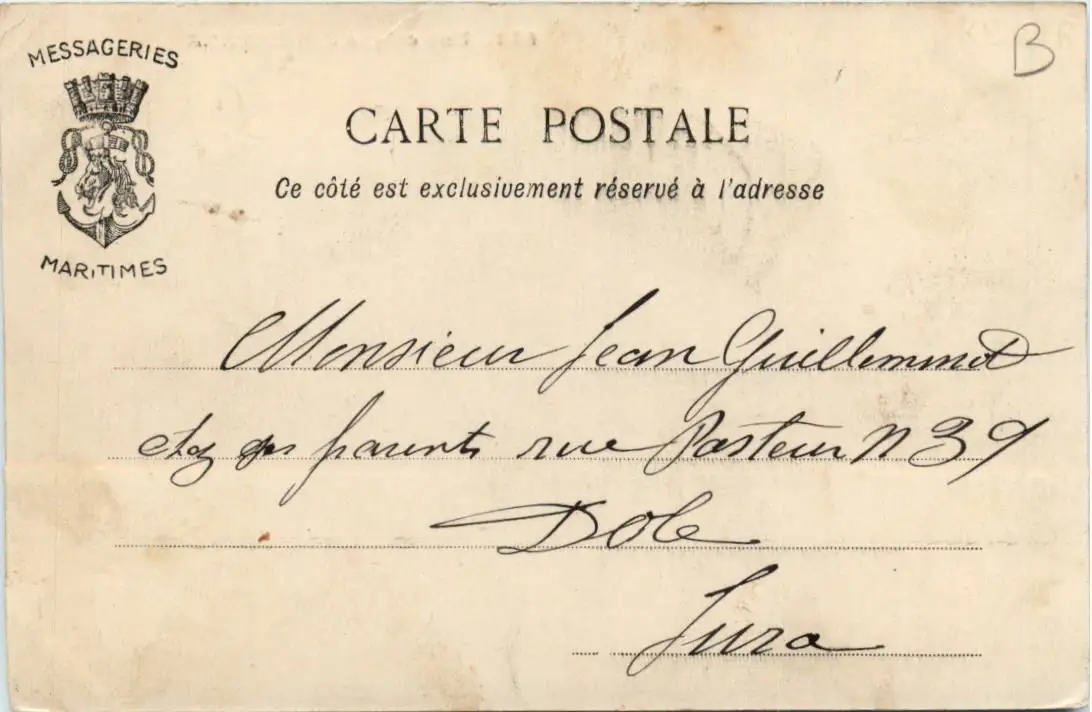 MESSAGERIES
MARITIMES
B
CARTE POSTALE
Ce côté est exclusivement réservé à l'adresse
Monsieur Jean Guillemmot
chez ses parents rue Pasteur N 39
Dole
Jura